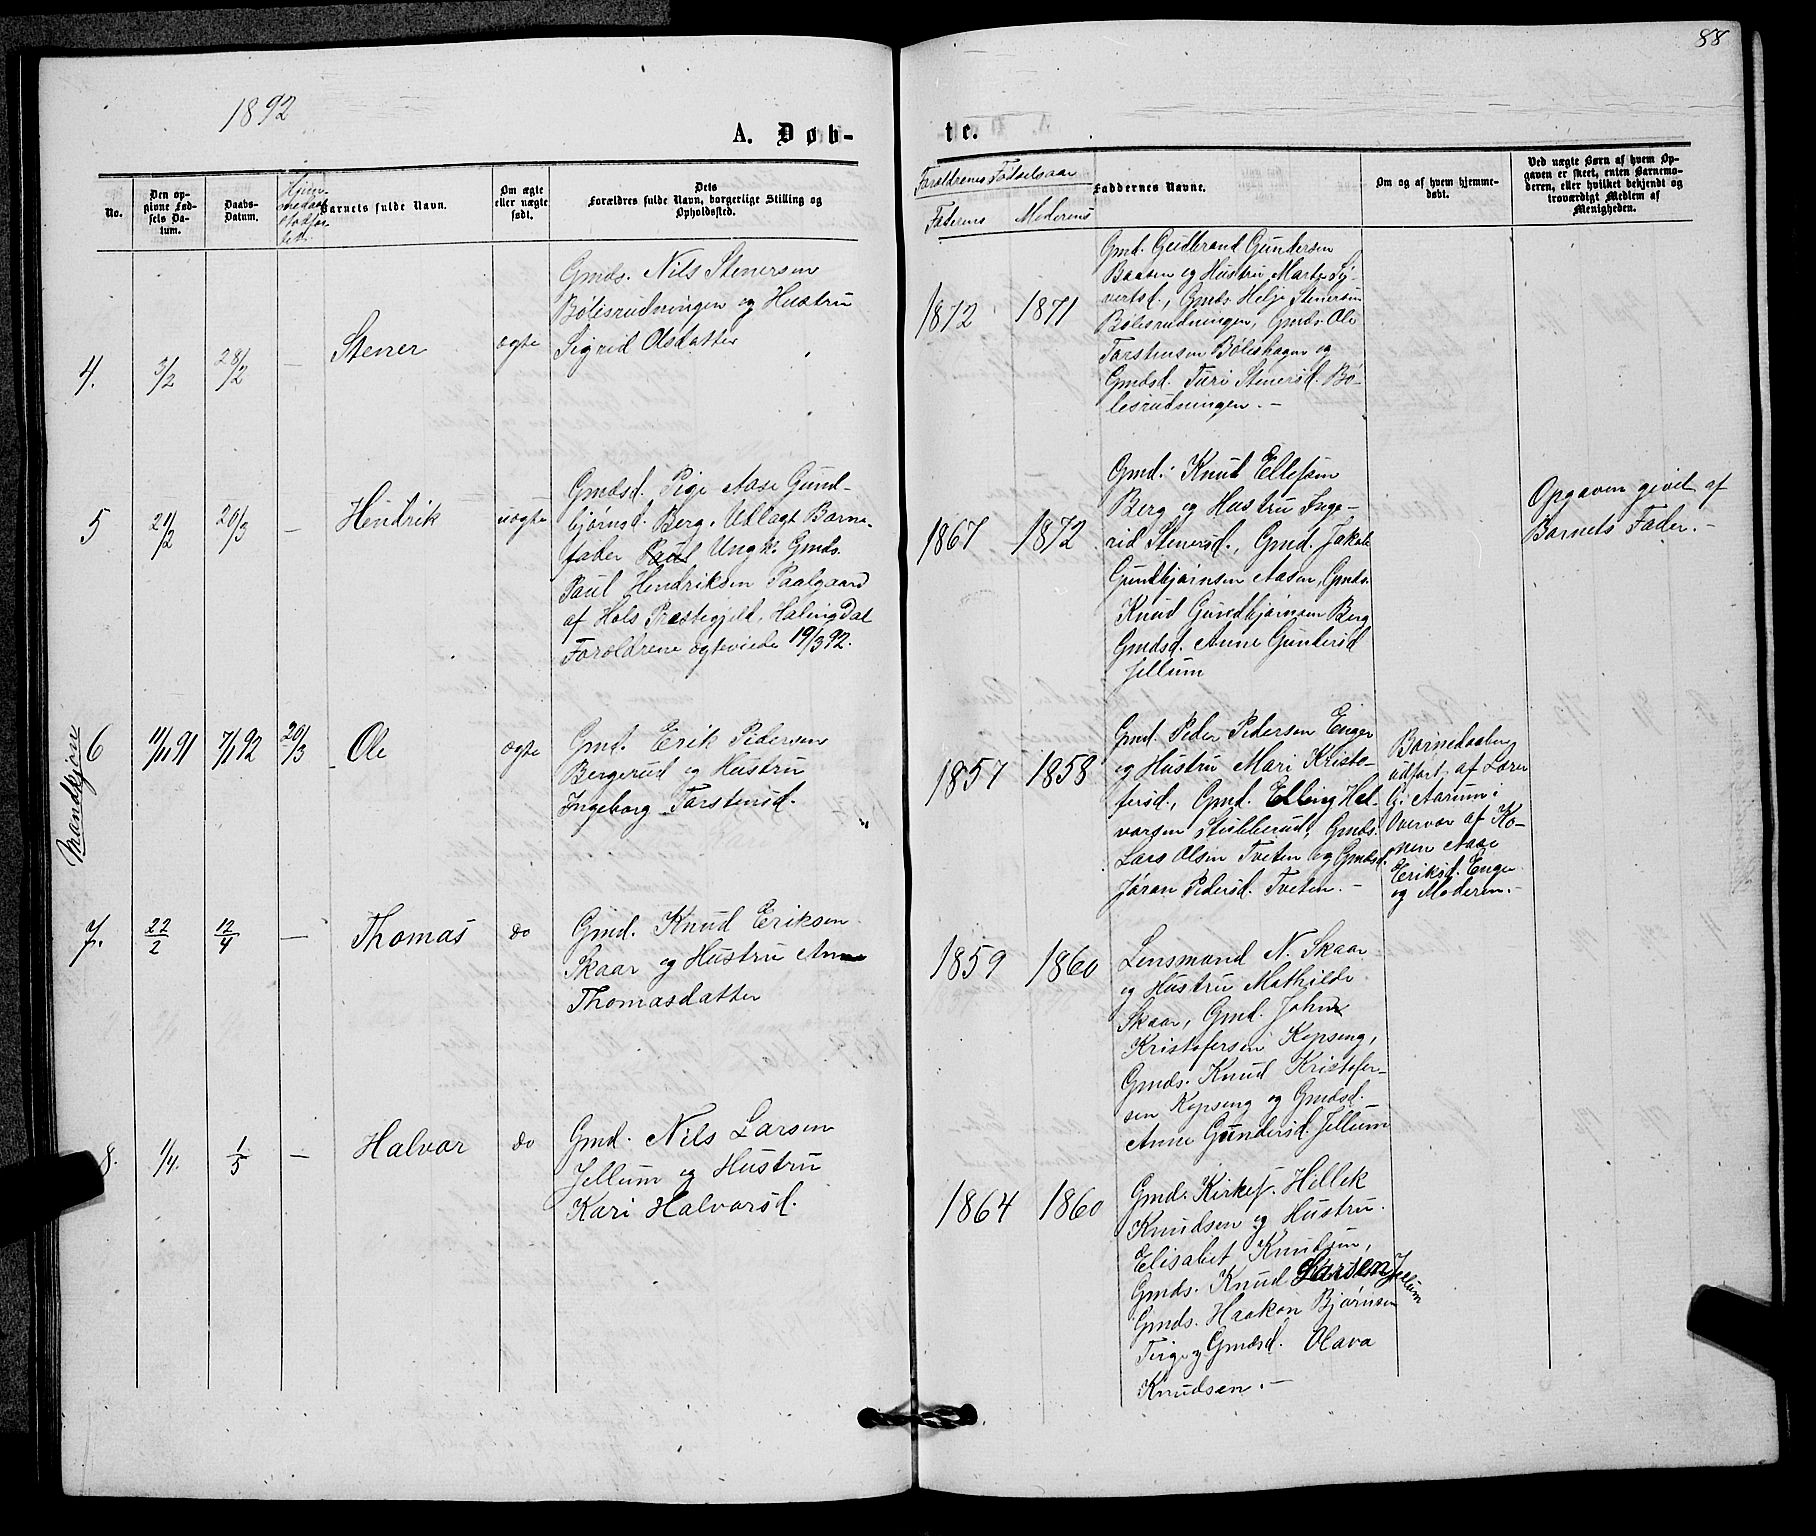 88
1892
A. Døb-
te.
No.
Den op-
givne Fød-
sels Da-
tum.
Daabs-
Datum.
Barnets fulde Navn.
Om ægte
eller uægte
født.
Dets
Forældres fulde Navn, borgerlige Stilling og
Opholdssted.
Forældrenes Fødselsaar
Faderens Moderens
Faddernes Navne.
Om og af hvem hjemme-
døbt.
Ved uægte Børn af hvem Op-
gaven er skeet, enten Barnemo-
deren, eller hvilket bekjendt og
troværdigt Medlem af
Menigheden.
Mandkjøn
4.
3/2
28/2
—
Stener
ægte
Gmds. Nils Stenersen
Bølesrudningen og Hustru
Sigrid Olsdatter
1872 1871
Gmd. Gudbrand Gundersen
Baasen og Hustru Marthe Sy-
vertsd., Gmds Helje Stenersen
Bølesrudningen, Gmds. Ole
Torstensen Bøleshagen og
Gmdsd. Turi Stenersd. Bø-
lesrudningen. —
5
21/2
20/3
—
Hendrik
uægte
Gmdsd. Pige Aase Gund-
bjørnsd. Berg. Udlagt Barne-
fader Paul Ungk. Gmds.
Paul Hendriksen Paalgaard
af Hols Præstegjeld, Halingdal
Forældrene ægteviede 19/3 92.
1867 1872
Gmd. Knud Ellefsen
Berg og Hustru Inge-
rid Stenersd., Gmd. Jakob
Gundbjørnsen Aasen, Gmds.
Knud Gundbjørnsen Berg
Gmdsd. Anne Gundersd
Jellum
Opgaven givet af
Barnets Fader. —
6
11/11 91
7/1 92
20/3
Ole
ægte
Gmd. Erik Pedersen
Bergerud og Hustru
Ingeborg Torstensd.
1857 1858
Gmd. Peder Pedersen Enger
og Hustru Mari Kristo-
fersd., Gmd. Elling Hal-
vorsen Stubberud, Gmds.
Lars Olsen Tveten og Gmdsd.
Jøran Pedersd. Tveten. —
Barnedaaben
udført af Lærer
G. Aarum i
Overvær af Ko-
nen Aase
Eriksd. Enger
og Moderen. —
7.
22/2
12/4
—
Thomas
do
Gmd. Knud Eriksen
Skaar og Hustru Anne
Thomasdatter
1859 1860
Lensmand N. Skaar
og Hustru Mathilde
Skaar, Gmd. John
Kristofersen Kopseng,
Gmds. Knud Kristofer-
sen Kopseng og Gmdsd.
Anne Gundersd. Jellum
8.
1/4.
1/5
—
Halvor
do
Gmd. Nils Larsen
Jellum og Hustru
Kari Halvorsd.
1864 1860
Gmd. Kirkes. Hellek
Knudsen og Hustru
Elisabet Knudsen,
Gmds. Knud Larsen Jellum
Gmds. Haakon Bjørnsen
Gmdsd. Olava
Knudsen. —